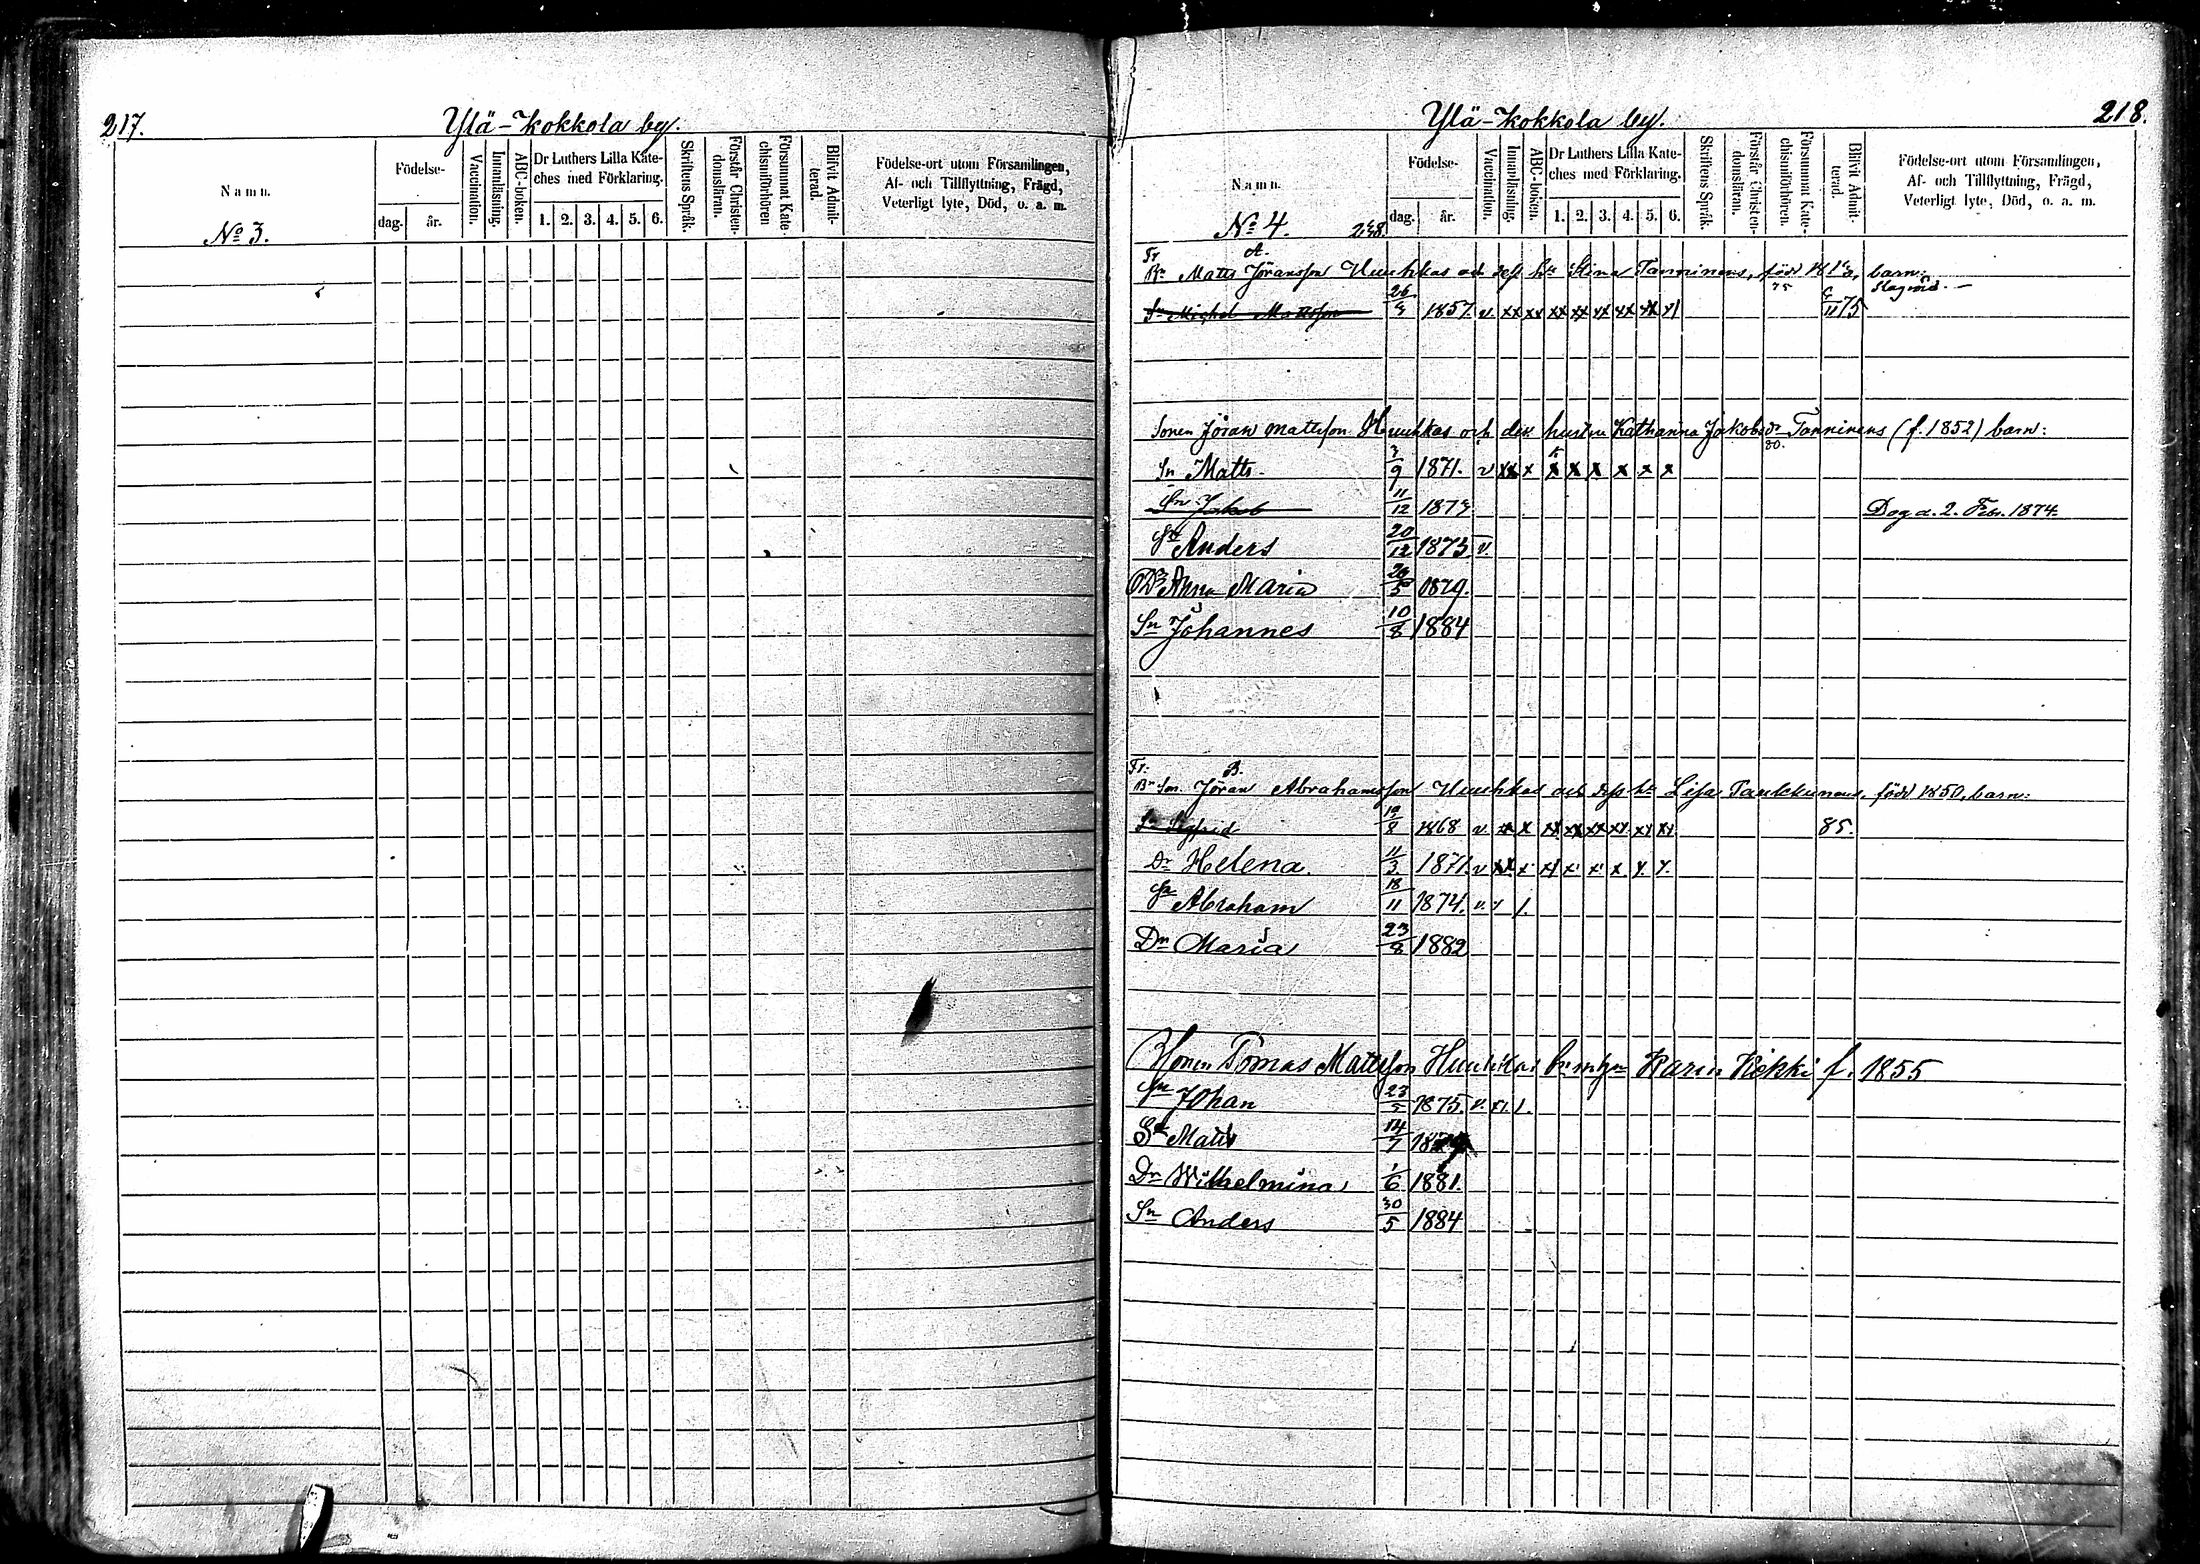 217.
Ylä-Kokkola by.
Namn.
Födelse-
dag.
år.
Vaccination.
Innanläsning.
ABC-boken.
Dr Luthers Lilla Kate-
ches med Förklaring.
1. 2. 3. 4. 5. 6.
Skriftens Språk.
Förstår Christen-
domsläran.
Försummat Kate-
chismiförhören
Blifvit Admit-
terad.
Födelse-ort utom Församlingen,
Af- och Tillflyttning, Frägd,
Veterligt lyte, Död, o. a. m.
No 3.
218.
Ylä-Kokkola by.
Namn.
Födelse-
dag.
år.
Vaccination.
Innanläsning.
ABC-boken.
Dr Luthers Lilla Kate-
ches med Förklaring.
1. 2. 3. 4. 5. 6.
Skriftens Språk.
Förstår Christen-
domsläran.
Försummat Kate-
chismiförhören.
Blifvit Admit-
terad.
Födelse-ort utom Församlingen,
Af- och Tillflyttning, Frägd,
Veterligt lyte, Död, o. a. m.
No 4.
Fr A.
Bn Matts Jöransson Huuhkas och dess hu Stina Tanninens, född barn:
75
Sn Michel Mattsson 26 1857. v xx xx xx xx xx xx xx 11 75
Sonen Jöran Mattsson Huuhkas och dess hustru Katharina Jakobsdr Tanninens (f. 1852) barn:
80.
Sn Matts 3/9 1871. v xx x x x x x x x
Sn Jakob 11/12 1873 Dog d. 2. Febr. 1874.
Sn Anders 20/12 1875 v.
Dr Anna Maria 1879.
Sn Johannes 10/8 1884
Fr: B.
Bn Son. Jöran Abrahamsson Huuhkas och dess hu Lisa Paukkunens, född 1850, barn:
Sn Sigfrid 1868 v. xx x xx xx xx xx xx xx 85.
Dr Helena. 11/3 1871. v xx x x x x x x x.
Sn Abraham 18/11 1874. v. x 1.
Dr Maria 23/8 1882
Sonen Tomas Mattsson Huuhkas Karin Kekki f. 1855
Sn Johan 23/5 1875. v. x1. 1.
Sn Matts 14/7
Dr Wilhelmina 1/6 1881.
Sn Anders 30/5 1884